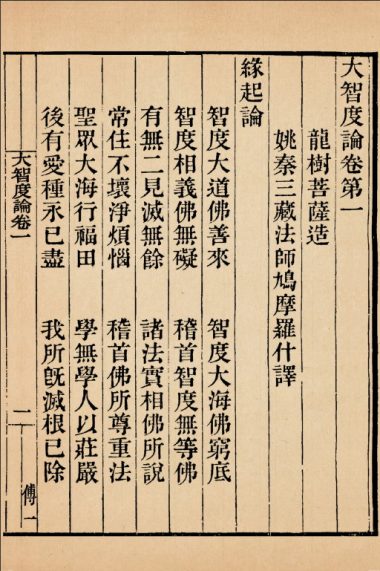 大智度論卷第一
龍樹菩薩造
姚秦三藏法師鳩摩羅什譯
緣起論
智度大道佛善來　智度大海佛窮底
智度相義佛無礙　稽首智度無等佛
有無二見滅無餘　諸法實相佛所說
常住不壞淨煩惱　稽首佛所尊重法
聖眾大海行福田　學無學人以莊嚴
後有愛種永已盡　我所旣滅根已除
大智度論卷一　二　傅一